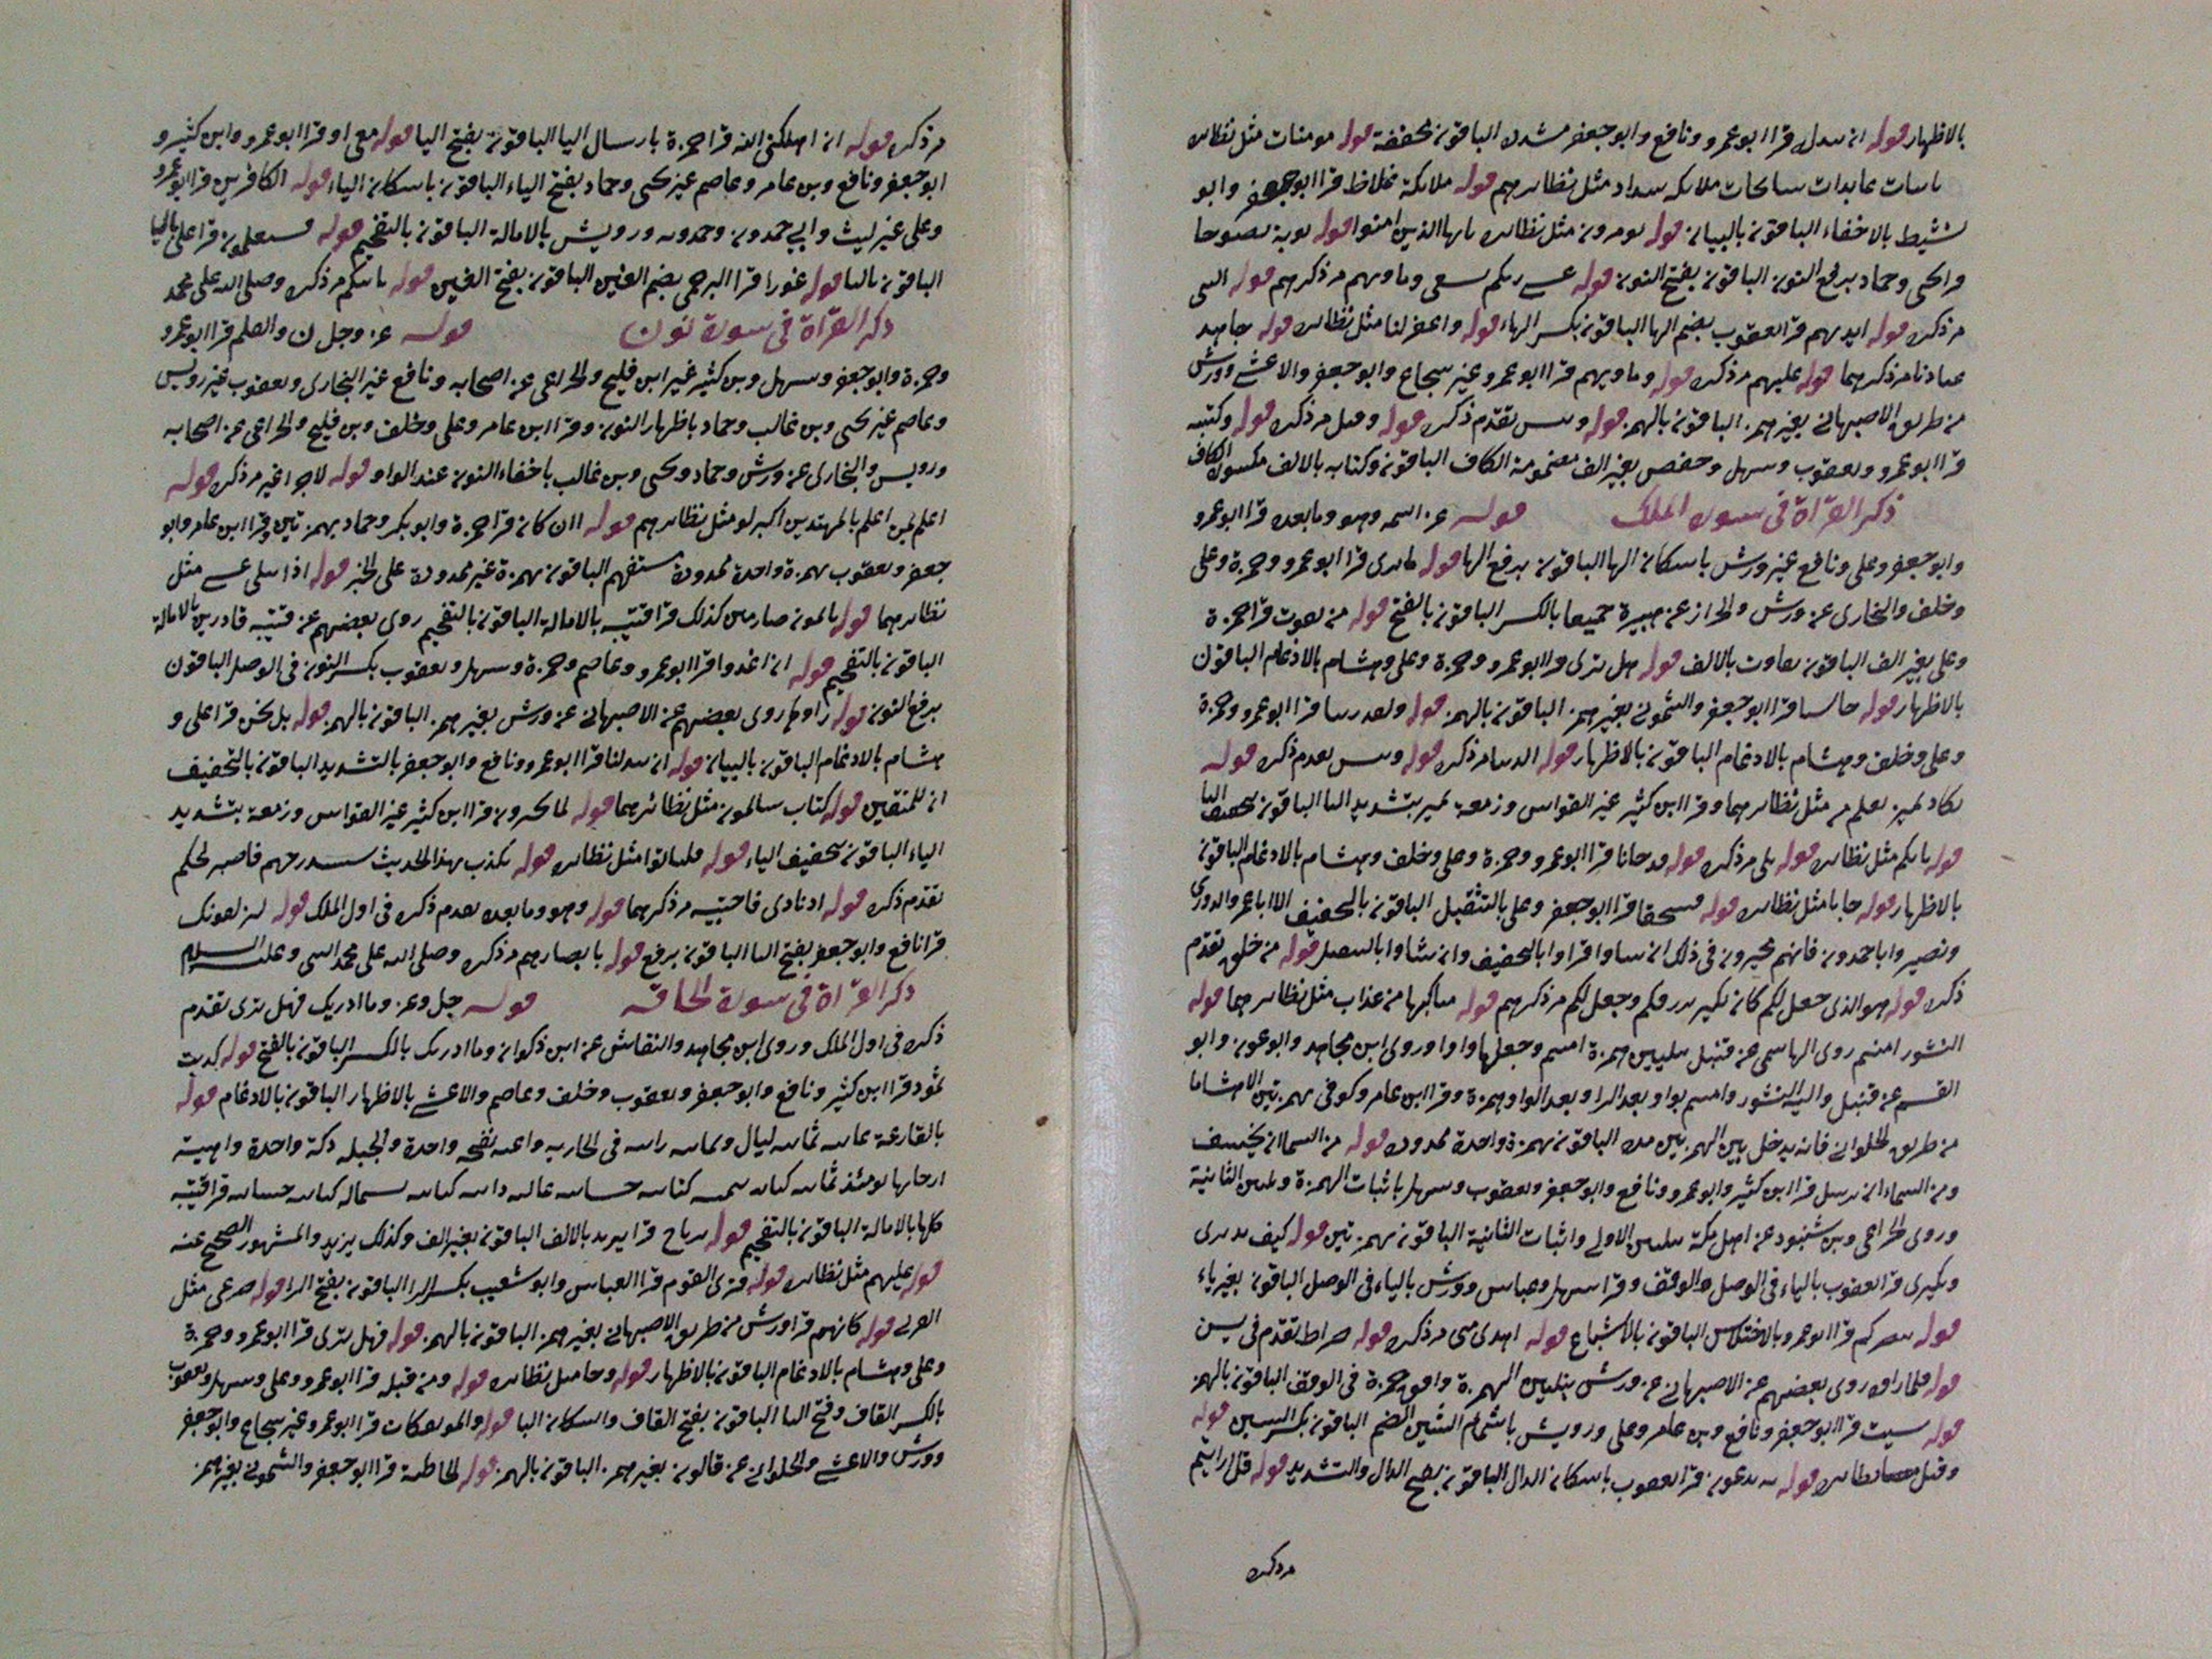 بالاظهار قوله ان يبدله قرا ابو عمرو ونافع وابو جعفر مشدده الباقون مخففة قوله مومنات مثل نظايره
عابدات سايحات ملايكه شداد مثل نظايرهم قوله ملايكة غلاظ قرا ابو جعفر وابو
نشيط بالاخفاء الباقون بالبيان قوله يومرون مثل نظايره يايها الذين امنوا قوله توبة نصوحا
قرا يحيى وحماد برفع النون الباقون بفتح النون قوله عسى ربكم يسعى وماويهم مر ذكرهم قوله النبي
مر ذكره قوله ايديهم قرا يعقوب بضم الها الباقون بكسر الهاء قوله واغفر لنا مثل نظايره قوله جاهد
عبادنا مر ذكرهما قوله عليهم مر ذكره قوله وماويهم قرا ابو عمرو غير شجاع وابو جعفر والاعشى وورش
من طريق الاصبهاني بغير همز الباقون بالهمز قوله وبيس تقدم ذكره قوله وقيل مر ذكره قوله وكتبه
قرا ابو عمرو ويعقوب وسهل وحفص بغير الف مضمومة الكاف الباقون وكتابه بالالف مكسورة الكاف
ذكر القراة في سورة الملك قوله عز اسمه وهو وما بعده قرا ابو عمرو
وابو جعفر وعلي ونافع غير ورش باسكان الها الباقون برفع الها قوله ما ترى قرا ابو عمرو وحمزة وعلي
وخلف والبخاري عن ورش والخزاز عن هبيرة جميعا بالكسر الباقون بالفتح قوله من تفوت قرا حمزة
وعلي بغير الف الباقون تفاوت بالالف قوله هل ترى قرا ابو عمرو وحمزة وعلي وهشام بالادغام الباقون
بالاظهار قوله خاسيا قرا ابو جعفر والشموني بغير همز الباقون بالهمز قوله ولقد زينا قرا ابو عمرو وحمزة
وعلي وخلف وهشام بالادغام الباقون بالاظهار قوله الدنيا مر ذكره قوله وبيس تقدم ذكره قوله
تكاد تميز مثل نظايرهما وقرا ابن كثير غير القواس وزمعة تميز بتشديد التا الباقون بتخفيف التا
قوله ياتكم مثل نظايره قوله بلى مر ذكره قوله قد جانا قرا ابو عمرو وحمزة وعلي وخلف وهشام بالادغام الباقون
بالاظهار قوله جانا مثل نظايره قوله فسحقا قرا ابو جعفر وعلي بالتثقيل الباقون بالتخفيف الا ابا عمر والدوري
ونصير وابا حمدون فانهم يخيرون في ذلك ان شاوا قراوا بالتخفيف وان شاوا بالتثقيل قوله من خلق تقدم
ذكره قوله هو الذي جعل لكم كان نكير يرزقكم وجعل لكم مر ذكرهم قوله مناكبها من عذاب مثل نظايرهما قوله
النشور امنتم روى الهاشمي عن قنبل بتليين همزة امنتم وجعلها واوا وروى ابن مجاهد وابو عون وابو
القسم عن قنبل واليه النشور وامنتم بواو بعد الرا وبعد الواو همزة وقرا ابن عامر وكوفي بهمزتين الا هشاما
من طريق الحلواني فانه يدخل بين الهمزتين مدة الباقون بهمزة واحدة ممدودة قوله من السما ان يخسف
ومن السماء ان يرسل قرا ابن كثير وابو عمرو ونافع وابو جعفر ويعقوب وسهل باثبات الهمزة وتليين الثانية
وروى الخزاعي وبن شنبوذ عن اهل مكة بتليين الاولى واثبات الثانية الباقون بهمزتين قوله كيف نذيرى
ونكيرى قرا يعقوب بالياء في الوصل والوقف وقرا سهل وعباس وورش بالياء في الوصل الباقون بغير ياء
قوله ينصركم قرا ابو عمرو بالاختلاس الباقون بالاشباع قوله اهدى متى مر ذكره قوله صراط تقدم في يس
قوله فلما راوه روى بعضهم عن الاصبهاني عن ورش بتليين الهمزة وافق حمزة في الوقف الباقون بالهمز
قوله سيت قرا ابو جعفر ونافع وبن عامر وعلي ورويس باشمام السين الضم الباقون بكسر السين قوله
وقيل نظايره قوله به تدعون قرا يعقوب باسكان الدال الباقون بفتح الدال والتشديد قوله قل ارايتم
مر ذكره
مر ذكره قوله ان اهلكني الله قرا حمزة بارسال اليا الباقون بفتح اليا قوله معي او قرا ابو عمرو وابن كثير و
ابو جعفر ونافع وبن عامر وعاصم غير يحيى وحماد بفتح الياء الباقون باسكان الياء قوله الكافرين قرا ابو عمرو
وعلي غير ليث وابي حمدون وحمدويه ورويس بالامالة الباقون بالتفخيم قوله فستعلمون قرا علي باليا
الباقون بالتا قوله غورا قرا البرجمي بضم الغين الباقون بفتح الغين قوله ياتيكم مر ذكره وصلى الله على محمد
ذكر القراة في سورة نون قوله عز وجل ن والقلم قرا ابو عمرو
وحمزة وابو جعفر وسهل وبن كثير غير ابن فليح والخزاعي عن اصحابه ونافع غير البخاري ويعقوب غير رويس
وعاصم غير يحيى وبن غالب وحماد باظهار النون وقرا ابن عامر وعلي وخلف وبن فليح والخزاعي عن اصحابه
ورويس والبخاري عن ورش وحماد ويحيى وبن غالب باخفاء النون عند الواو قوله لاجرا غير مر ذكره قوله
اعلم بمن اعلم بالمهتدين اكبر لو مثل نظايرهم قوله اان كان قرا حمزة وابو بكر وحماد بهمزتين وقرا ابن عامر وابو
جعفر ويعقوب بهمزة واحدة ممدودة مستفهم الباقون بهمزة غير ممدودة على الخبر قوله اذا تتلى عسى مثل
نظايرهما قوله نايمون صارمين كذلك قرا قتيبه بالامالة الباقون بالتفخيم روى بعضهم عن قتيبه قادرين بالامالة
الباقون بالتفخيم قوله ان اغدوا قرا ابو عمرو وعاصم وحمزة وسهل ويعقوب بكسر النون في الوصل الباقون
برفع النون قوله راوها روى بعضهم عن الاصبهاني عن ورش بغير همز الباقون بالهمز قوله بل نحن قرا علي و
هشام بالادغام الباقون بالبيان قوله ان يبدلنا قرا ابو عمرو ونافع وابو جعفر بالتشديد الباقون بالتخفيف
ان للمتقين قوله كتاب سالمون مثل نظائرهما قوله لما تخيرون قرا ابن كثير غير القواس وزمعة بتشديد
الياء الباقون بتخفيف الياء قوله فلياتوا مثل نظايره قوله يكذب بهذا الحديث سنستدرجهم فاصبر لحكم
تقدم ذكره قوله اذ نادى فاجتبيه مر ذكرهما قوله وهو وما بعده تقدم ذكره في اول الملك قوله ليزلقونك
قرا نافع وابو جعفر بفتح اليا الباقون برفع قوله بابصارهم مر ذكره وصلى الله على محمد النبي وعليه السلام
ذكر القراة في سورة الحاقه قوله جل وعز وما ادريك فهل ترى تقدم
ذكره في اول الملك وروى ابن مجاهد والنقاش عن ابن ذكوان وما ادريك بالكسر الباقون بالفتح قوله كذبت
ثمود قرا ابن كثير ونافع وابو جعفر ويعقوب وخلف وعاصم والاعشى بالاظهار الباقون بالادغام قوله
بالقارعة عاتيه ثمانيه ليال وثمانيه رابيه في الجاريه واعيه نفخه واحدة والجبال دكة واحدة واهية
ارجايها يومئذ ثمانيه كتابيه حسابيه عاليه دانيه كتابيه بشماله كتابيه حسابيه قرا قتيبه
كلها بالامالة الباقون بالتفخيم قوله برياح قرا يزيد بالالف الباقون بغير الف وكذلك يزيد والمشهور الصحيح عنه
قوله عليهم مثل نظايره قوله فترى القوم قرا العباس وابو شعيب بكسر الرا الباقون بفتح الرا قوله صرعى مثل
القربى قوله كانهم قرا ورش من طريق الاصبهاني بغير همز الباقون بالهمز قوله فهل ترى قرا ابو عمرو وحمزة
وعلي وهشام بالادغام الباقون بالاظهار قوله وجا مثل نظايره قوله ومن قبله قرا ابو عمرو وعلي وسهل ويعقوب
بالكسر القاف وفتح البا الباقون بفتح القاف واسكان البا قوله والموتفكات قرا ابو عمرو غير شجاع وابو جعفر
وورش والاعشى والحلواني عن قالون بغير همز الباقون بالهمز قوله الخاطئة قرا ابو جعفر والشموني بغير همز